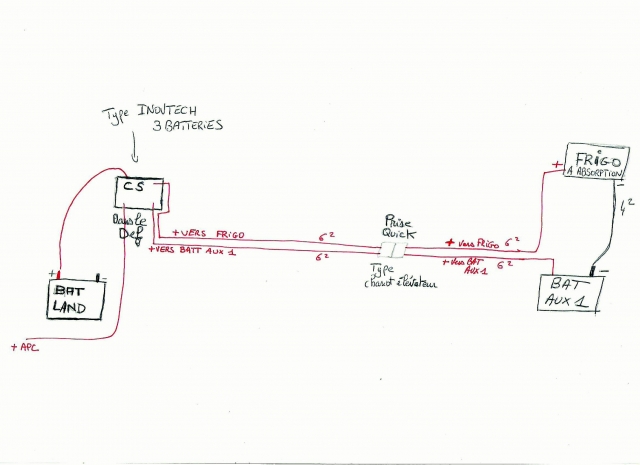 Type INOVTECH
3 BATTERIES
CS
Dans le
Def
+ VERS FRIGO 6²
+ VERS BATT AUX 1 6²
Prise
Quick
Type
chariot élévateur
+ vers FRIGO 6²
+ vers BAT
AUX 1 6²
+
FRIGO
A ABSORPTION
-
4²
-
BAT
AUX 1
+ -
BAT
LAND
+ APC